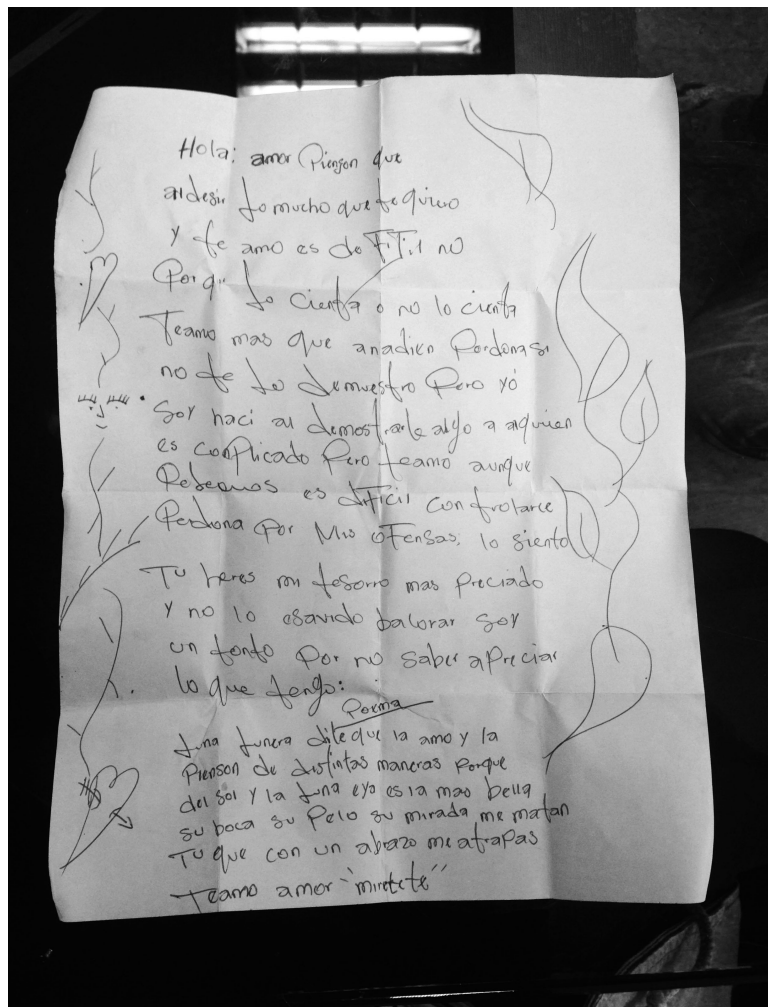 Hola: amor Pienson que
al desir lo mucho que te quiero
y te amo es de no
Porqu lo cienta o no lo cienta
Teamo mas que anadien Perdona si
no te lo demuestro Pero yó
Soy haci al demostrarle algo a alguien
es complicado Pero teamo aunque
Peleamos es dificil controlarce
Perdona Por Mis oFensas, lo siento
Tu heres mi tesorro mas Preciado
y no lo esavido balorar soy
un tonto Por no saber apreciar
lo que tengo:
Poema
Luna lunera dile que la amo y la
Pienson de distintas maneras Porque
del sol y la luna eya es la mas bella
su boca su Pelo su mirada me matan
Tu que con un abrazo me atrapas
Teamo amor